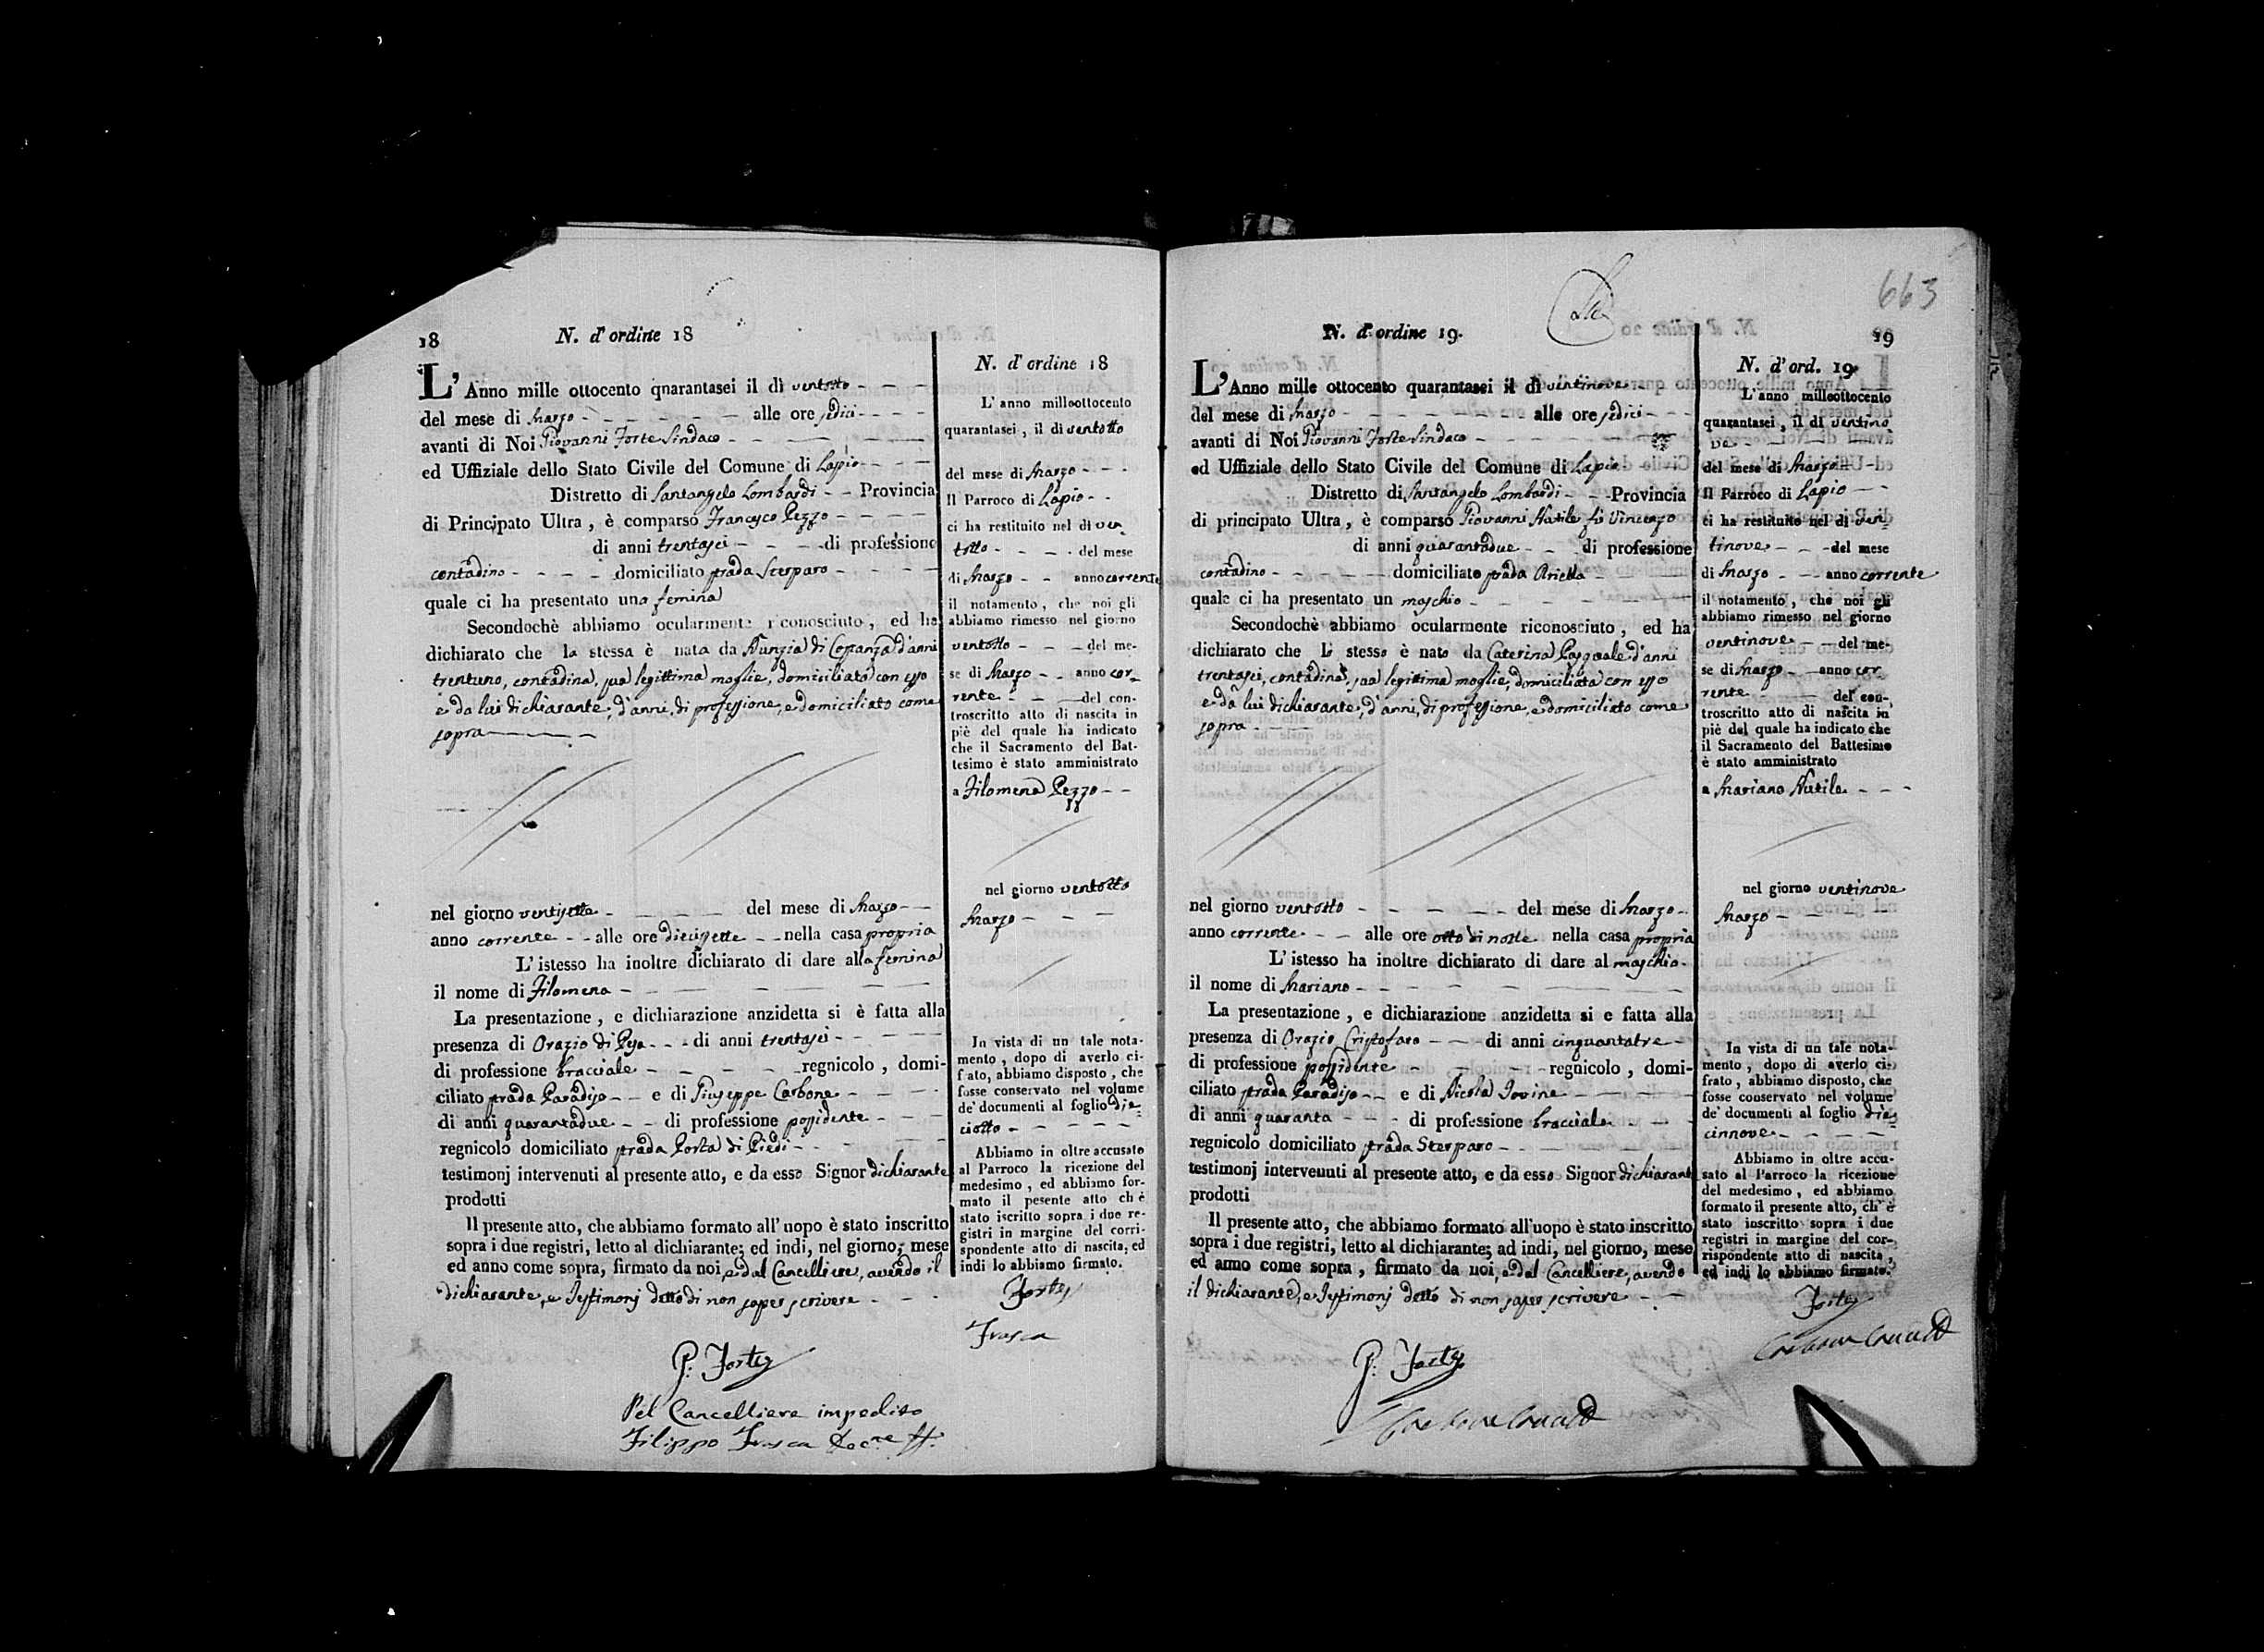 18
N. d'ordine 18
L'Anno mille ottocento qnarantasei il dì ventotto
del mese di Marzo alle ore sedici
avanti di Noi Giovanni Forte Sindaco
ed Uffiziale dello Stato Civile del Comune di Lapio
Distretto di Santangelo Lombardi Provincia
di Principato Ultra, è comparso Francesco Pezzo
di anni trentasei di professione
contadino domiciliato strada Sterparo
quale ci ha presentato una femina
Secondochè abbiamo ocularmente riconosciuto, ed ha
dichiarato che la stessa è nata da Nunzia di Costanza d'anni
trentuno, contadina, sua legittima moglie, domiciliata con esso
e da lui dichiarante, d'anni, di professione, e domiciliato come
sopra
nel giorno ventisette del mese di Marzo
anno corrente alle ore diecisette nella casa propria
L'istesso ha inoltre dichiarato di dare alla femina
il nome di Filomena
La presentazione, e dichiarazione anzidetta si è fatta alla
presenza di Orazio di Peso di anni trentasei
di professione bracciale regnicolo, domi-
ciliato strada Paradiso e di Giuseppe Carbone
di anni quarantadue di professione possidente
regnicolo domiciliato strada Porta di Piedi
testimonj intervenuti al presente atto, e da esso Signor dichiarante
prodotti
Il presente atto, che abbiamo formato all'uopo è stato inscritto
sopra i due registri, letto al dichiarante; ed indi, nel giorno, mese
ed anno come sopra, firmato da noi, e dal Cancelliere, avendo il
dichiarante, e Testimonj detto di non saper scrivere
G: Forte
Pel Cancelliere impedito
Filippo Frasca
N. d'ordine 18
L'anno milleottocento
quarantasei, il dì ventotto
del mese di Marzo
Il Parroco di Lapio
ci ha restituito nel dì ven
totto del mese
di Marzo anno corrente
il notamento, che noi gli
abbiamo rimesso nel giorno
ventotto del me-
se di Marzo anno cor-
rente del con-
troscritto atto di nascita in
piè del quale ha indicato
che il Sacramento del Bat-
tesimo è stato amministrato
a Filomena Pezzo
nel giorno ventotto
Marzo
In vista di un tale nota-
mento, dopo di averlo ci-
frato, abbiamo disposto, che
fosse conservato nel volume
de' documenti al foglio die-
ciotto
Abbiamo in oltre accusato
al Parroco la ricezione del
medesimo, ed abbiamo for-
mato il pesente atto ch è
stato iscritto sopra i due re-
gistri in margine del corri-
spondente atto di nascita, ed
indi lo abbiamo firmato.
Forte
Frasca
663
N. d'ordine 19.
19
L'Anno mille ottocento quarantasei il dì ventinove
del mese di Marzo alle ore sedici
avanti di Noi Giovanni Forte Sindaco
ed Uffiziale dello Stato Civile del Comune di Lapio
Distretto di Santangelo Lombardi Provincia
di principato Ultra, è comparso Giovanni Nutile fù Vincenzo
di anni quarantadue di professione
contadino domiciliato strada Ariella
quale ci ha presentato un maschio
Secondochè abbiamo ocularmente riconosciuto, ed ha
dichiarato che lo stesso è nato da Caterina Pasquale d'anni
trentasei, contadina, sua legitima moglie, domiciliata con esso
e da lui dichiarante, d'anni, di professione, e domiciliato come
sopra
nel giorno ventotto del mese di Marzo
anno corrente alle ore otto di notte nella casa propria
L'istesso ha inoltre dichiarato di dare al maschio
il nome di Mariano
La presentazione, e dichiarazione anzidetta si e fatta alla
presenza di Orazio Cristofaro di anni cinquantatre
di professione possidente regnicolo, domi-
ciliato strada Paradiso e di Nicola Iovine
di anni quaranta di professione bracciale
regnicolo domiciliato strada Sterparo
testimonj intervenuti al presente atto, e da esso Signor dichiarante
prodotti
Il presente atto, che abbiamo formato all'uopo è stato inscritto
sopra i due registri, letto al dichiarante; ad indi, nel giorno, mese
ed anno come sopra, firmato da noi, e dal Cancelliere, avendo
il dichiarante, e Testimonj detto di non saper scrivere
G: Forte
N. d'ord. 19.
L'anno milleottocento
quarantasei, il dì ventino
ve
del mese di Marzo
Il Parroco di Lapio
ci ha restituito nel dì ven
tinove del mese
di Marzo anno corrente
il notamento, che noi gli
abbiamo rimesso nel giorno
ventinove del me-
se di Marzo anno cor-
rente del con-
troscritto atto di nascita in
piè del quale ha indicato che
il Sacramento del Battesimo
è stato amministrato
a Mariano Nutile
nel giorno ventinove
Marzo
In vista di un tale nota-
mento, dopo di averlo ci-
frato, abbiamo disposto, che
fosse conservato nel volume
de' documenti al foglio die
cinnove
Abbiamo in oltre accu-
sato al Parroco la ricezione
del medesimo, ed abbiamo
formato il presente atto, ch' è
stato inscritto sopra i due
registri in margine del cor-
rispondente atto di nascita,
ed indi lo abbiamo firmato.
Forte